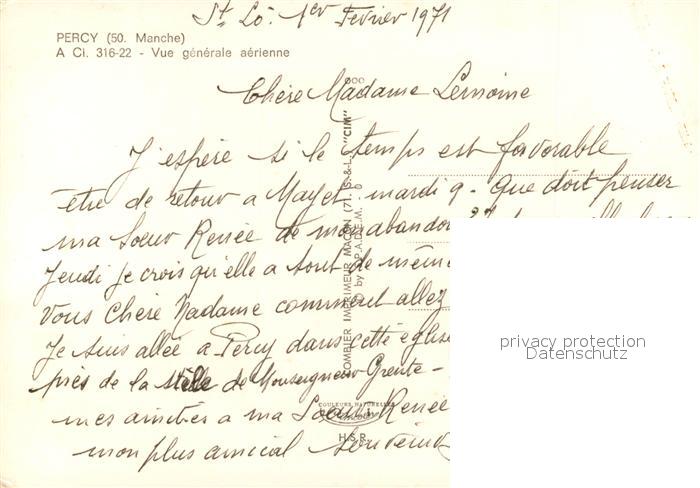 St Lô. 1er Février 1971
PERCY (50. Manche)
A Cl. 316-22 - Vue générale aérienne
Chère Madame Lemoine
J'espère si le temps est favorable
être de retour a Mayet mardi 9 - Que doit penser
ma Soeur Renée de mon abandon
Jeudi je crois qu'elle a tout de même
Vous Chère Madame comment allez
Je suis allée a Percy dans cette église
près de la stèle de Monseigneur Grente -
mes amitiés a ma Soeur Renée
mon plus amical Souvenir
COMBIER IMPRIMEUR MACON (71. S.-&-L.) "CIM"
© by S.P.A.D.E.M.
COULEURS NATURELLES
H.S.R.
privacy protection
Datenschutz